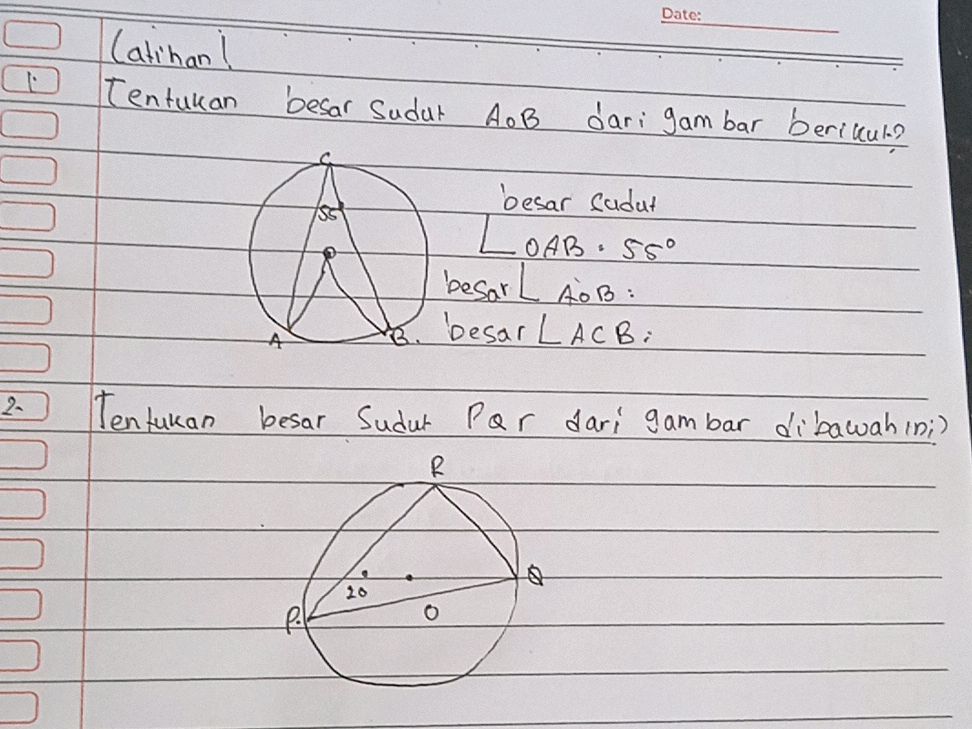 Date:
Latihan!
1. Tentukan besar sudut AoB dari gambar berikut?
C
55°
A
B.
besar sudut
∟OAB = 55°
besar ∟ AoB :
besar ∟ ACB :
2. Tentukan besar Sudut PQr dari gambar dibawah ini?
R
20
Q
P.
O